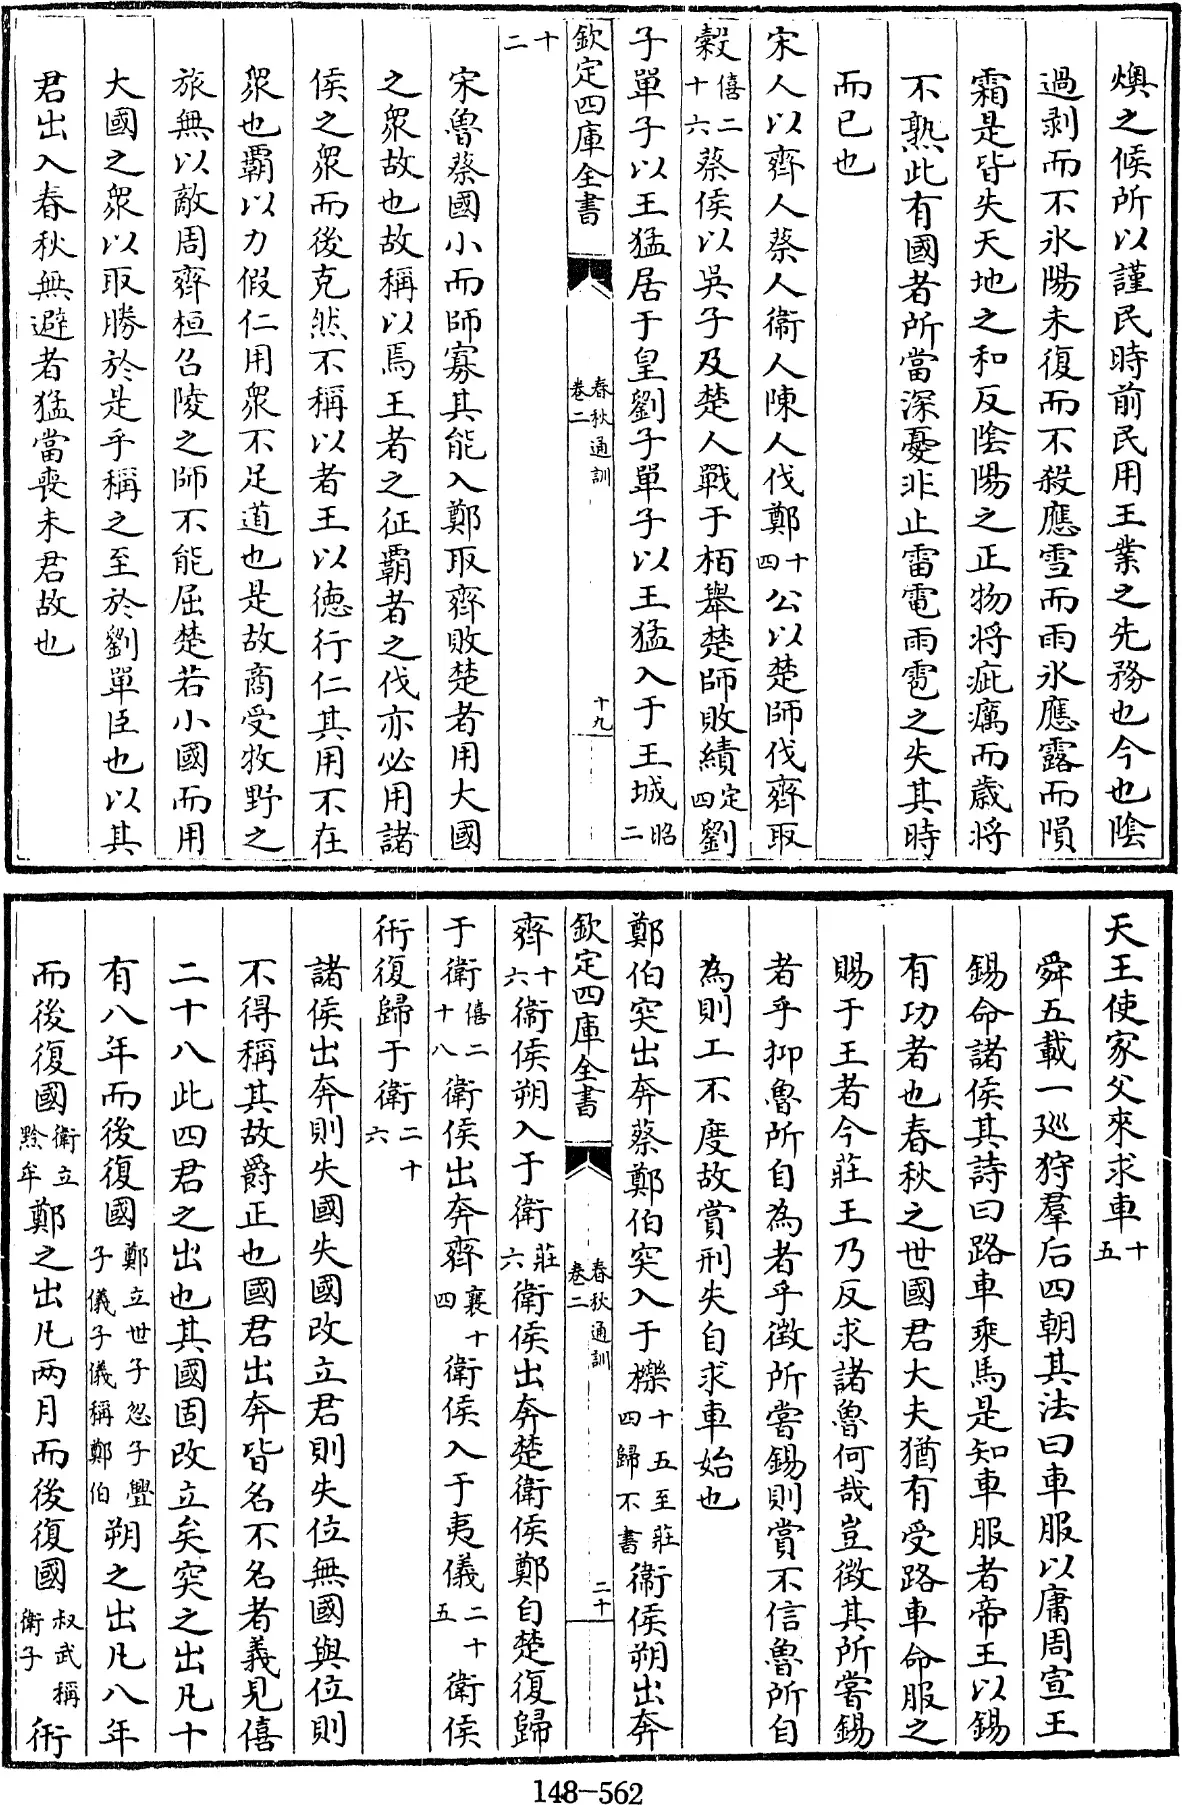 燠之候所以謹民時前民用王業之先務也今也陰
過剥而不氷陽未復而不殺應雪而雨氷應露而隕
霜是皆失天地之和反陰陽之正物將疵癘而歲將
不熟此有國者所當深憂非止雷電雨雹之失其時
而已也
宋人以齊人蔡人衛人陳人伐鄭十四公以楚師伐齊取
榖僖二十六蔡侯以吳子及楚人戰于栢舉楚師敗績定四劉
子單子以王猛居于皇劉子單子以王猛入于王城昭二
欽定四庫全書 春秋通訓 卷二 十九
十二
宋魯蔡國小而師寡其能入鄭取齊敗楚者用大國
之衆故也故稱以焉王者之征霸者之伐亦必用諸
侯之衆而後克然不稱以者王以德行仁其用不在
衆也霸以力假仁用衆不足道也是故商受牧野之
旅無以敵周齊桓召陵之師不能屈楚若小國而用
大國之衆以取勝於是乎稱之至於劉單臣也以其
君出入春秋無避者猛當喪未君故也
天王使家父來求車十五
舜五載一廵狩羣后四朝其法曰車服以庸周宣王
錫命諸侯其詩曰路車乘馬是知車服者帝王以錫
有功者也春秋之世國君大夫猶有受路車命服之
賜于王者今莊王乃反求諸魯何哉豈徴其所嘗錫
者乎抑魯所自為者乎徴所嘗錫則賞不信魯所自
為則工不度故賞刑失自求車始也
鄭伯突出奔蔡鄭伯突入于櫟十五至莊四歸不書衛侯朔出奔
欽定四庫全書 春秋通訓 卷二 二十
齊十六衛侯朔入于衛莊六衛侯出奔楚衛侯鄭自楚復歸
于衛僖二十八衛侯出奔齊襄十四衛侯入于夷儀二十五衛侯
衎復歸于衛二十六
諸侯出奔則失國失國改立君則失位無國與位則
不得稱其故爵正也國君出奔皆名不名者義見僖
二十八此四君之出也其國固改立矣突之出凡十
有八年而後復國鄭立世子忽子亹子儀子儀稱鄭伯朔之出凡八年
而後復國衛立黔牟鄭之出凡兩月而後復國叔武稱衛子衎
148-562